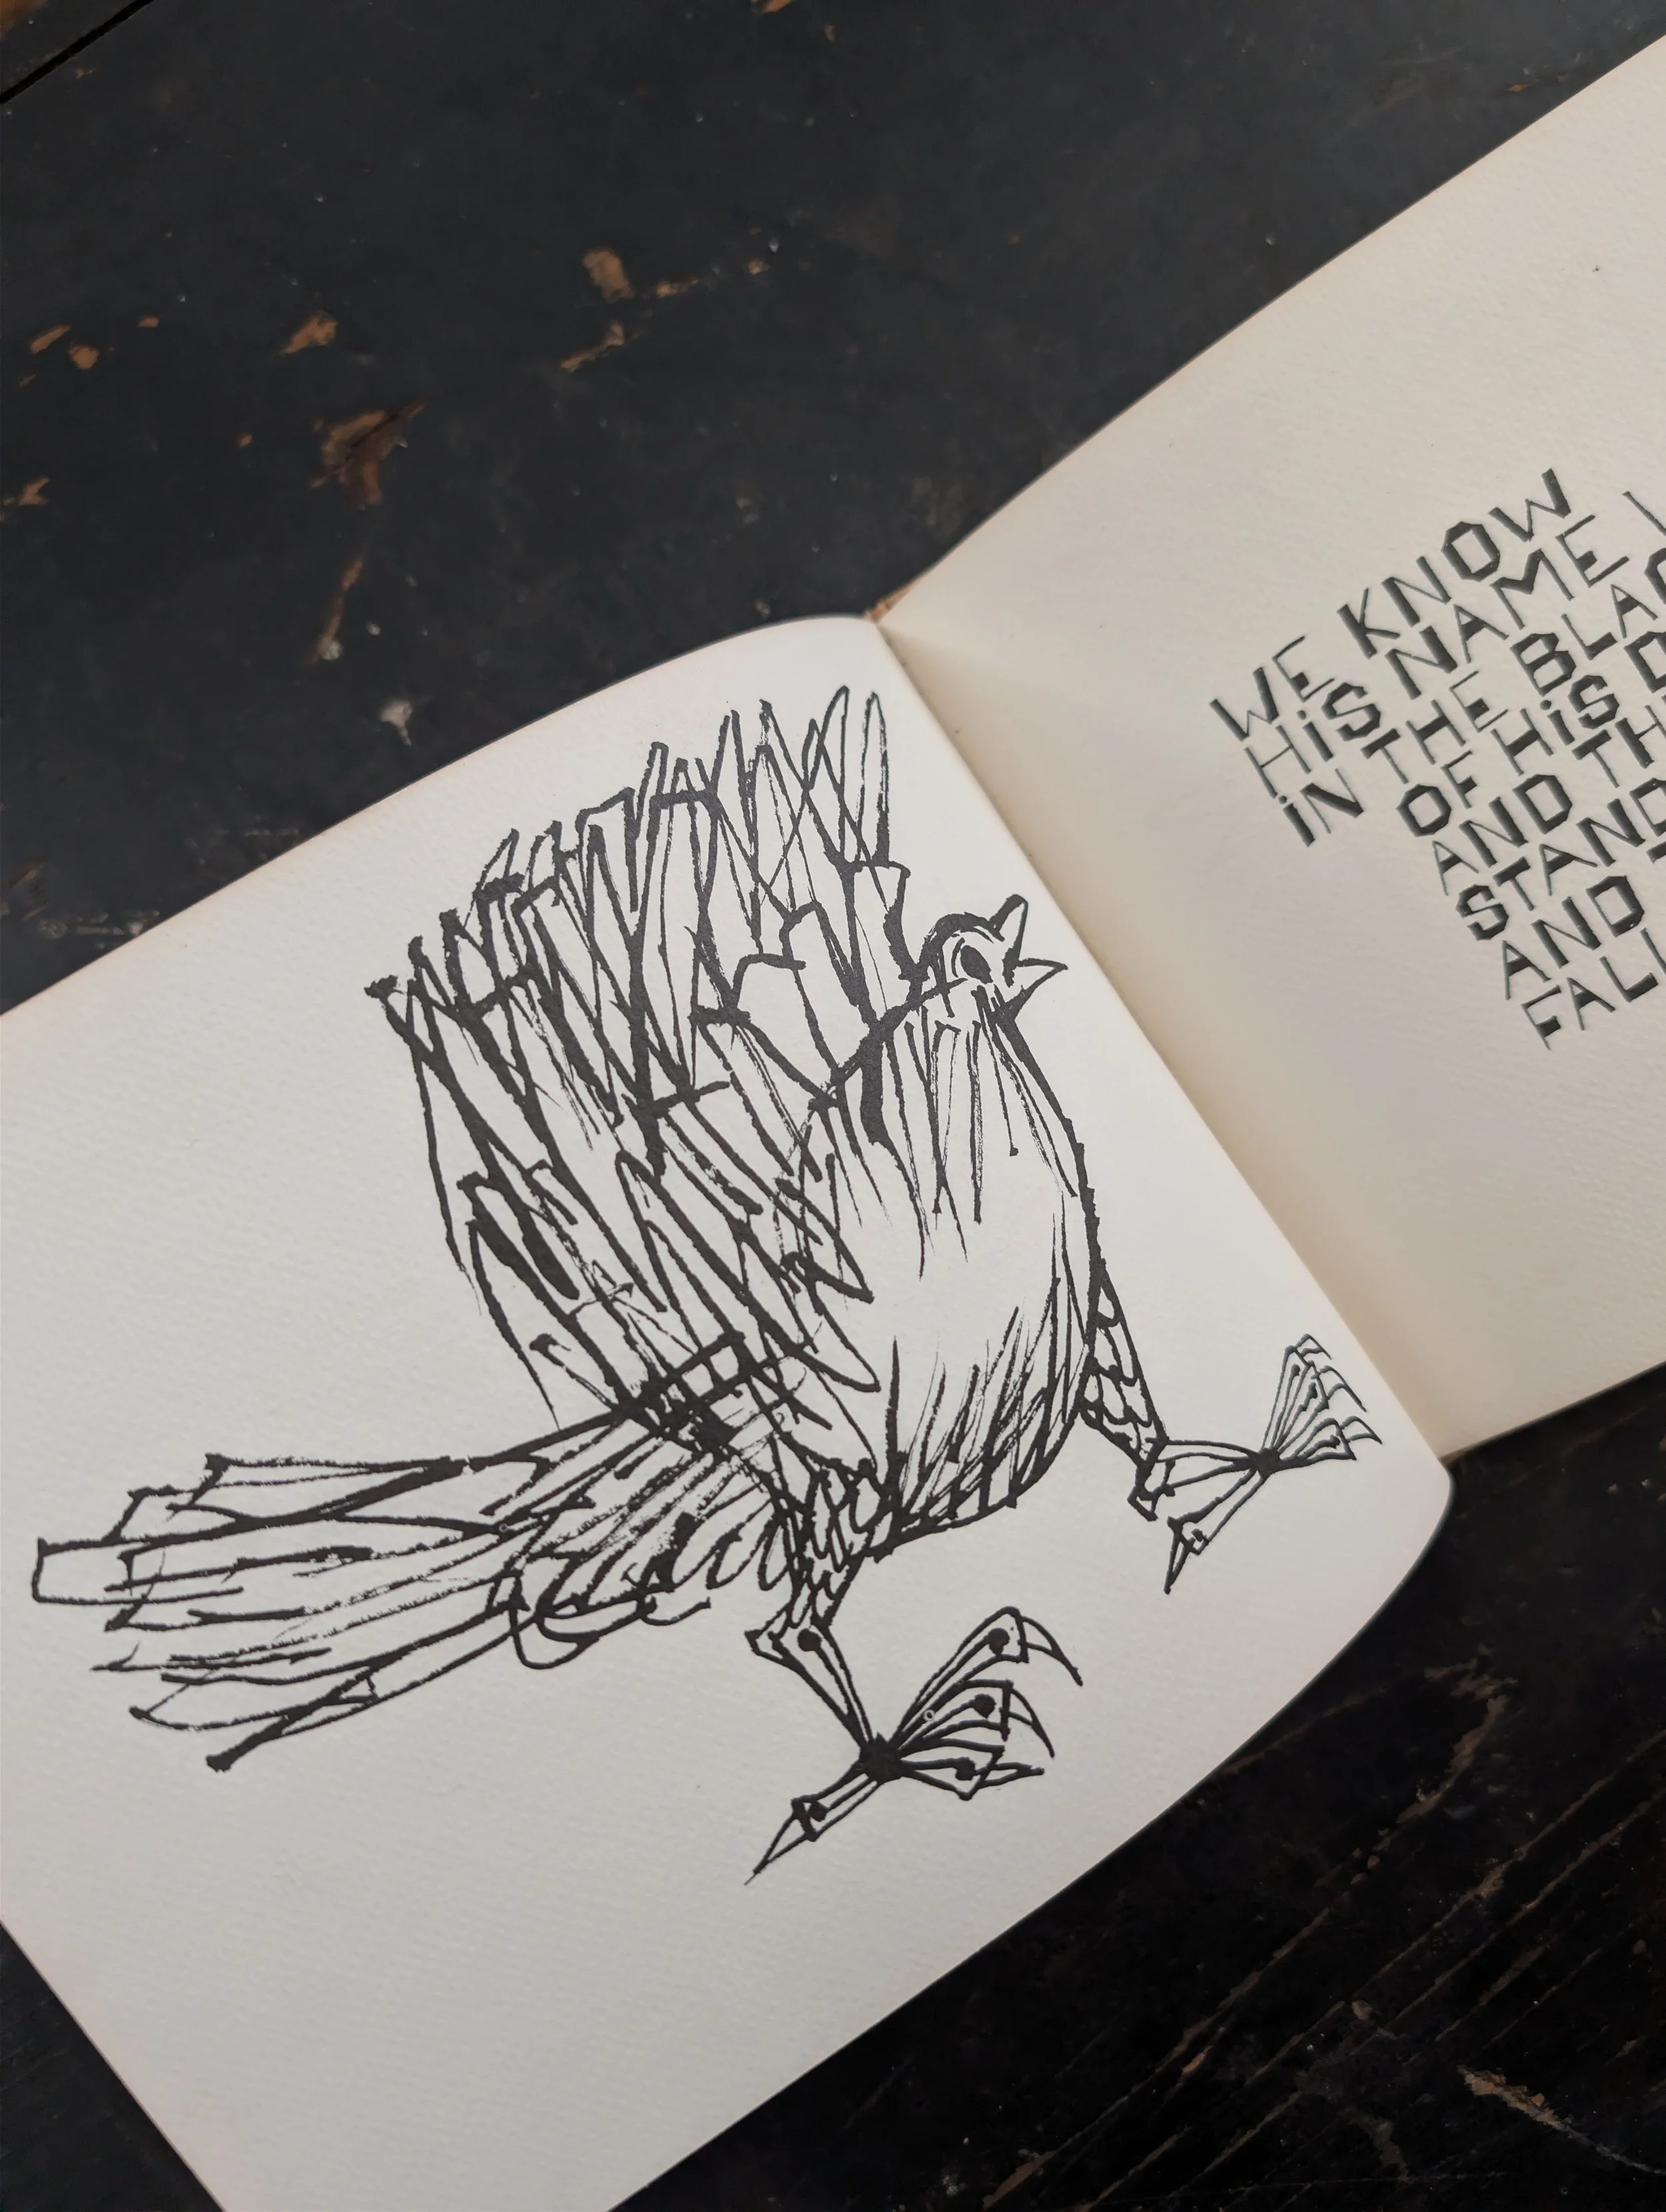 WE KNOW
HiS NAME
iN THE
OF HiS
AND
STAND
AND
FALL